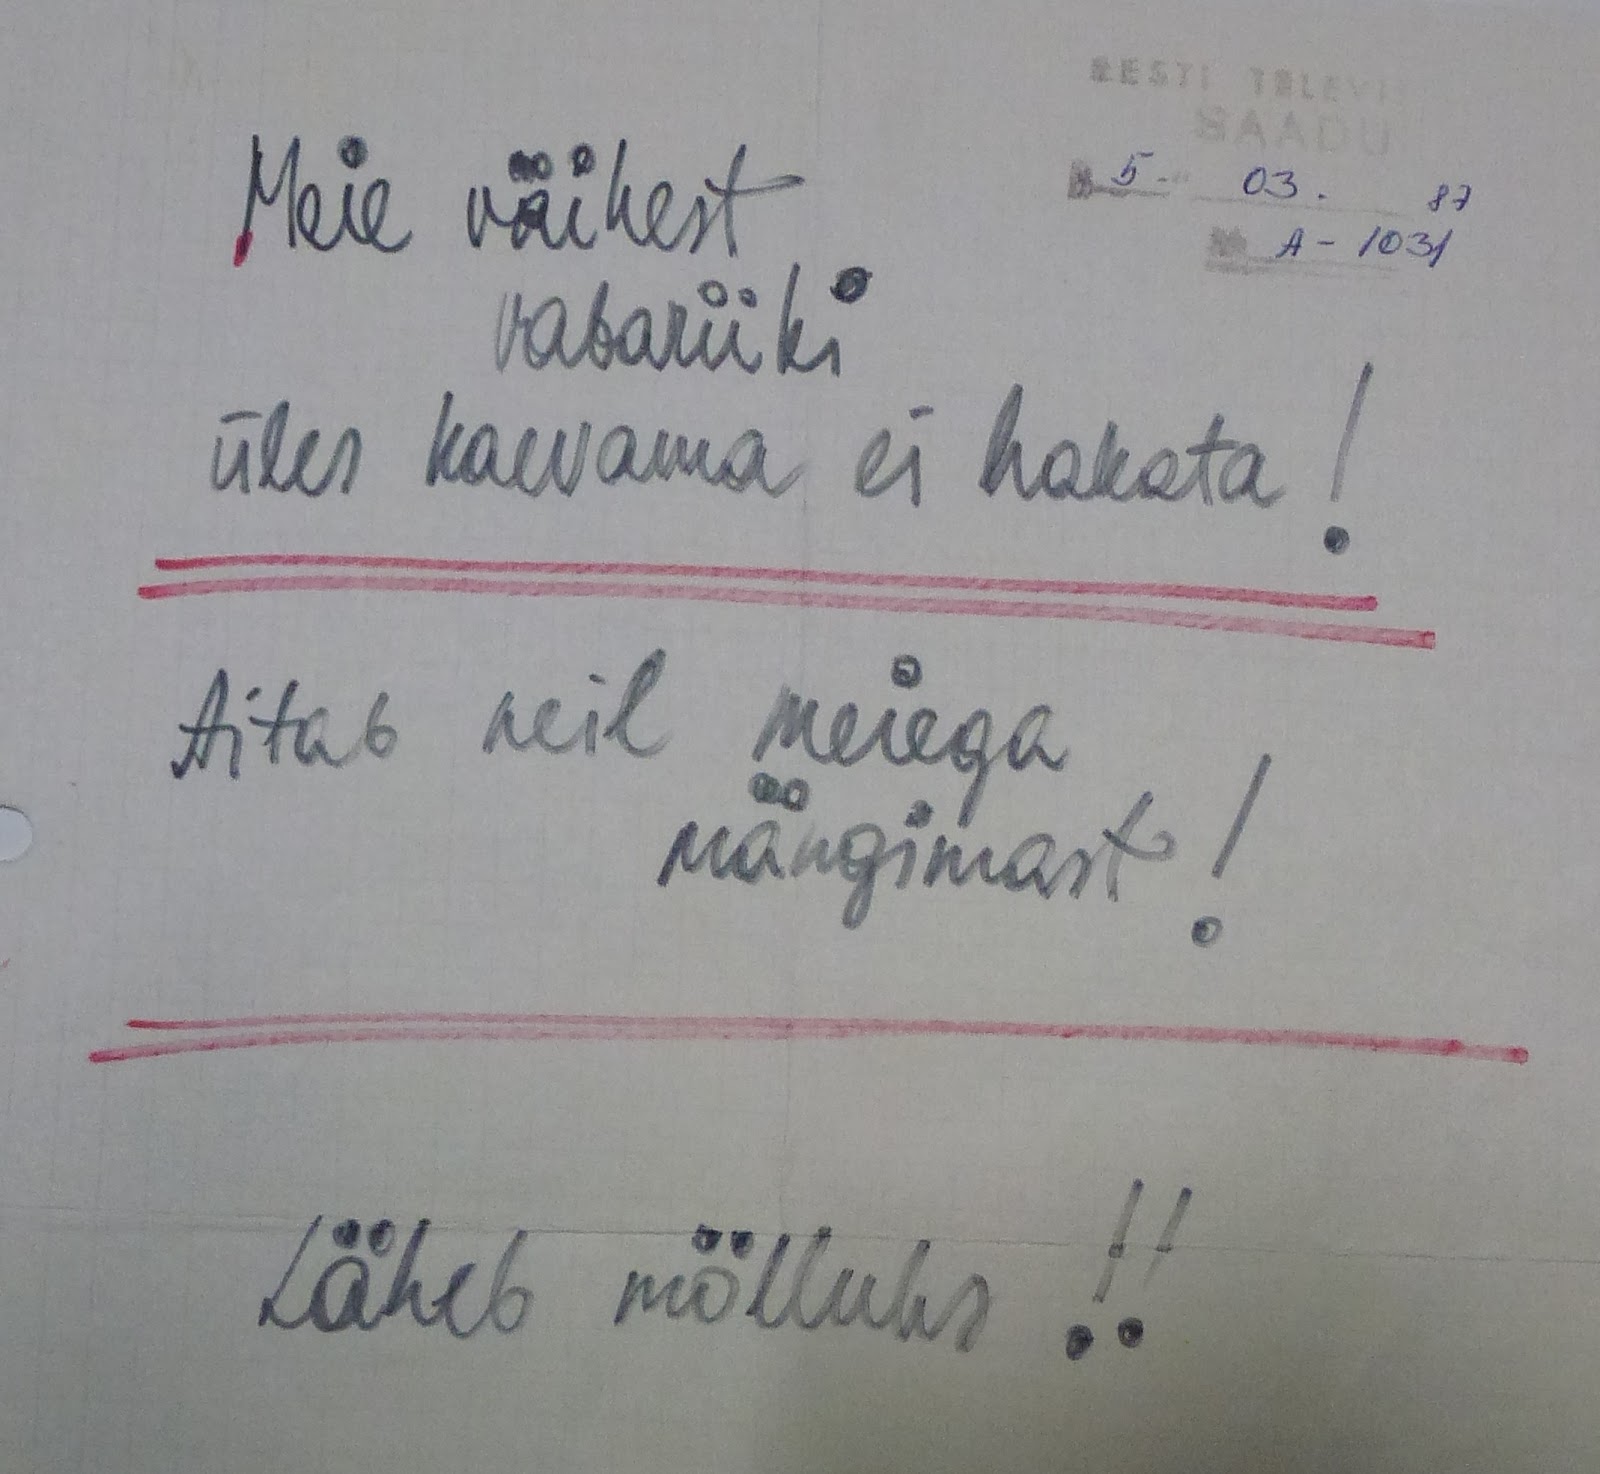 EESTI TELEVI
SAADU
5. 03. 87
A-1031
Meie väikest
vabariiki
üles kaevama ei hakata!
Aitab neil meiega
mängimast!
Läheb mölluks!!